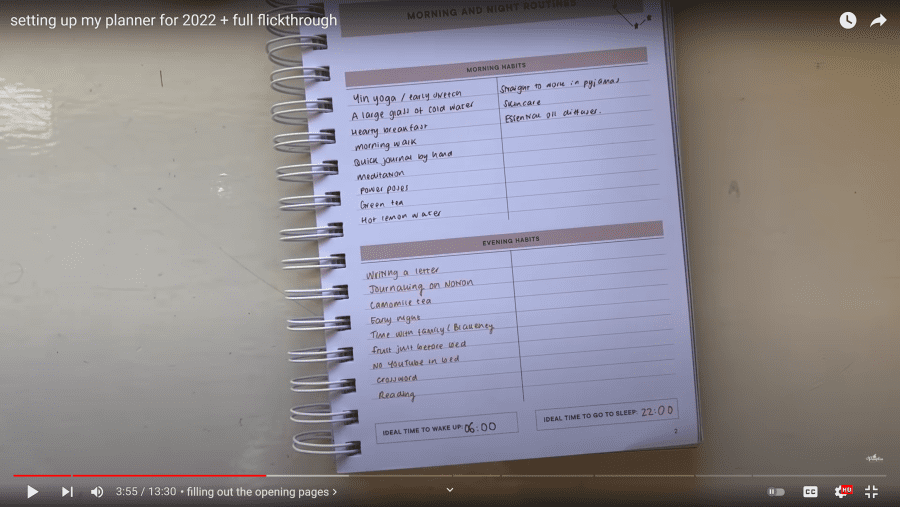 setting up my planner for 2022 + full flickthrough
MORNING AND NIGHT ROUTINES
MORNING HABITS
Yin yoga / early stretch
A large glass of cold water
Hearty breakfast
morning walk
Quick journal by hand
meditation
Power poses
Green tea
Hot lemon water
Straight to work in pyjamas
Skincare
Essential oil diffuser.
EVENING HABITS
Writing a letter
Journaling on Notion
Camomile tea
Early night
Time with family / Blakeney
fruit just before bed
No YouTube in bed
crossword
Reading
IDEAL TIME TO WAKE UP: 06:00
IDEAL TIME TO GO TO SLEEP: 22:00
2
3:55 / 13:30 • filling out the opening pages >
CC
HD